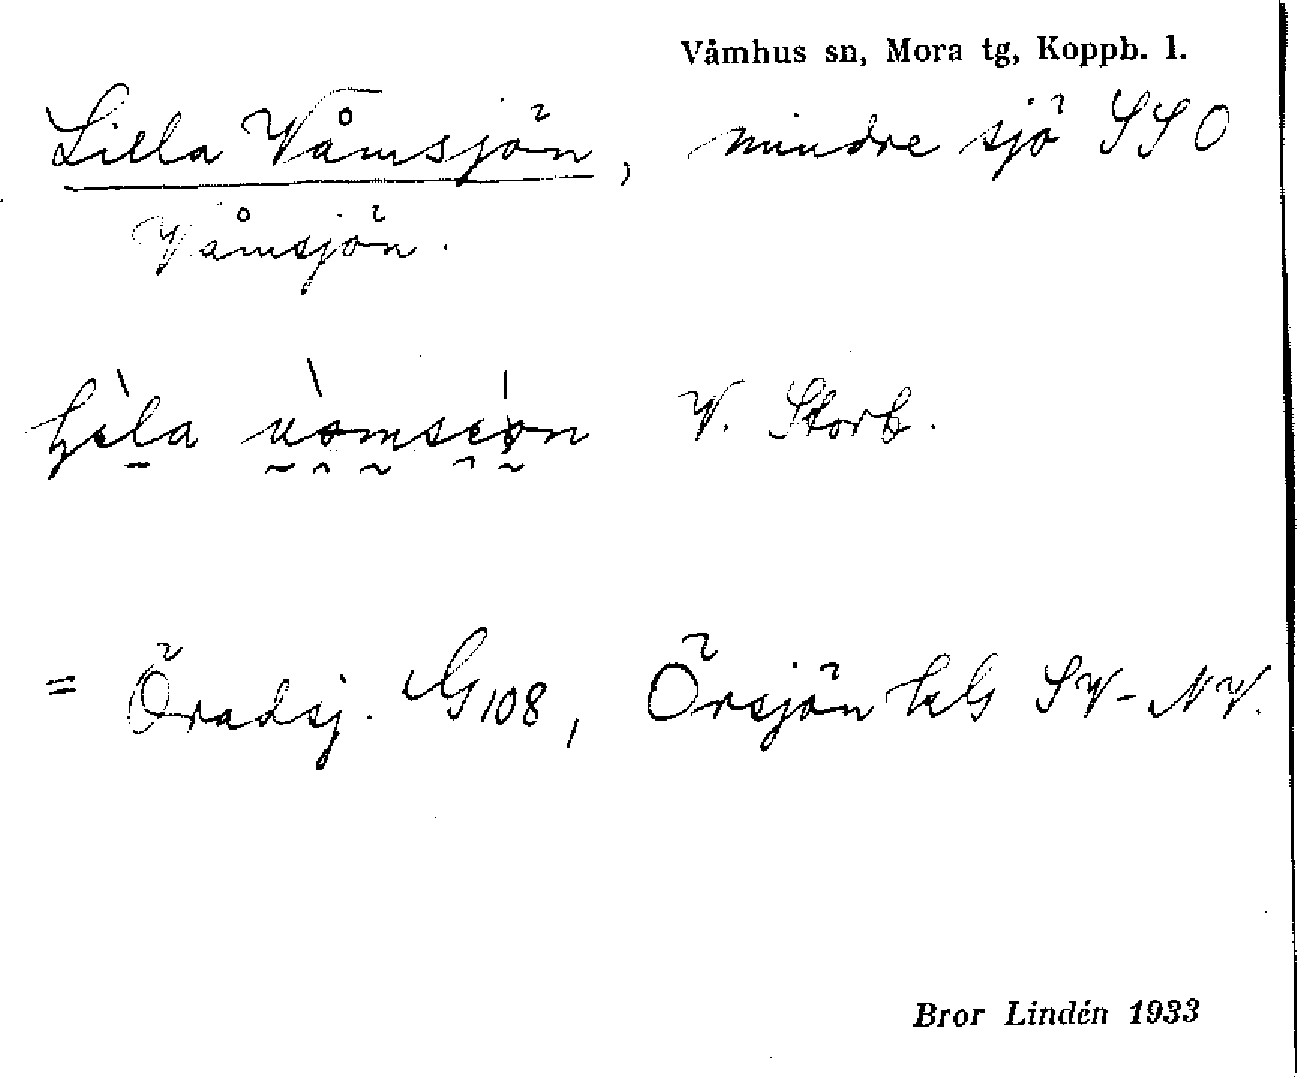 Våmhus sn, Mora tg, Koppb. l.
Lilla Våmsjön, mindre sjö SSO
Våmsjön.
V. Storb.
= Öradsj. G108, Örsjön SV-NV.
Bror Lindén 1933